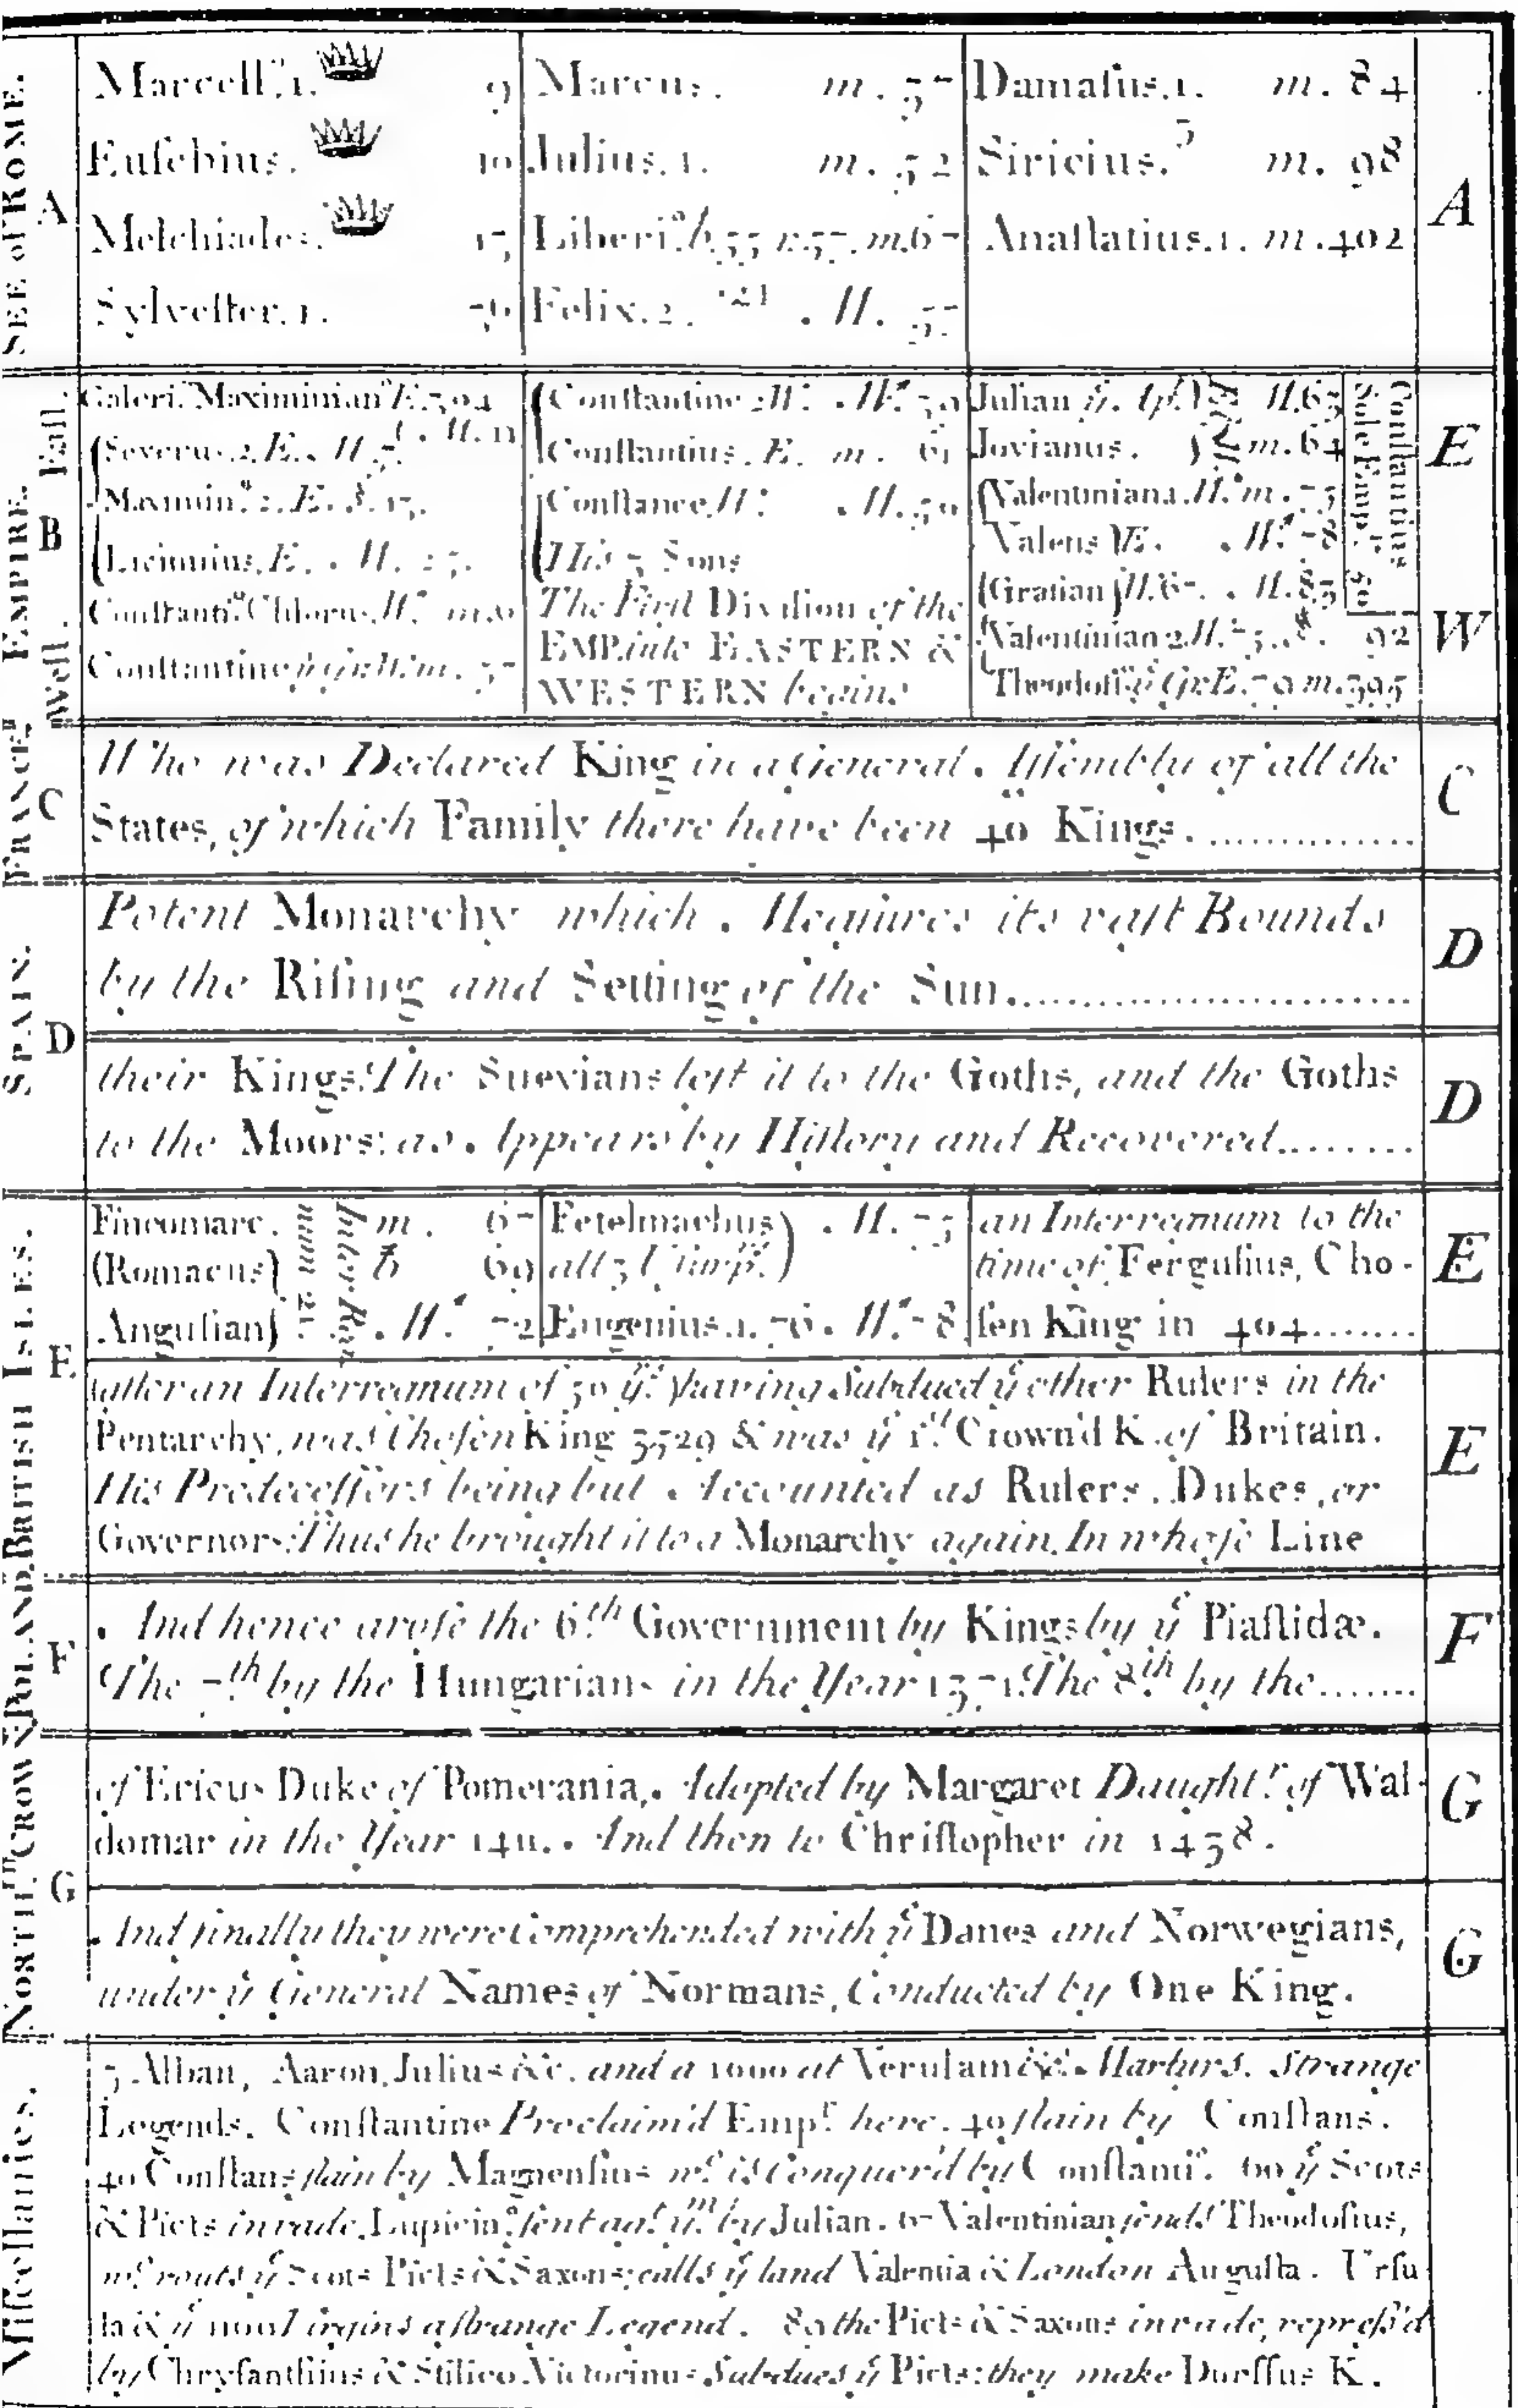 SEE of ROME.
A
Marcell.us 1. 9
Eusebius. 10
Melchiades. 13
Sylvester. 1.
Marcus. m. 37
Julius. 1. m. 52
Liberi.us b. 55 r. 57. m. 67
Felix. 2. M. 57
Damasus. 1. m. 84
Siricius. m. 98
Anastatius. 1. m. 402
A
EMPIRE.
East.
B
West.
Galeri.us Maximinian.us E. 304
(Severus. 2. E.
Maximin.us 2. E. 13.
(Licinnius, E.
Constanti.us Chlorus. W.
Constantine
(Constantine 2 W.
Constantius. E. m. 61
Constance W.
His 3 Sons
The First Division of the
EMP. into EASTERN &
WESTERN begins
Julian 63
Jovianus. m. 64
(Valentiniana. W. m. 75
Valens E. 78
(Gratian W. 67. M. 83
Valentinian 2. W. 75. 92
Theodosi.us ye Gr. E. 79 m. 395
Constantius
Sole Emp.r 50
E
W
FRANCE.
C
Who was Declared King in a General Assembly of all the
States, of which Family there have been 40 Kings.
C
SPAIN.
D
Potent Monarchy which Measures its vast Bounds
by the Rising and Setting of the Sun
D
their Kings. The Suevians left it to the Goths, and the Goths
to the Moors: as Appears by History and Recovered
D
BRITISH ISLES.
E
Fincomarc. m. 67
(Romacus 69
Angusian) 72
Fetelmachus 75
all 3
Eugenius. 1. 76. 78
an Interregnum to the
time of Fergusius, Cho-
sen King in 404
E
(after an Interregnum of 50 yrs.) having Subdued ye other Rulers in the
Pentarchy, was Chosen King 3529 & was ye 1st Crown'd K. of Britain.
His Predecessors being but Accounted as Rulers, Dukes, or
Governors: Thus he brought it to a Monarchy again. In whose Line
E
POLAND.
F
And hence arose the 6th Government by Kings by ye Piastidæ.
The 7th by the Hungarians in the Year 1371. The 8th by the
F
NORTH.rn CROWNS
G
of Ericus Duke of Pomerania, Adopted by Margaret Daught.r of Wal-
domar in the Year 1411. And then to Christopher in 1438.
G
And finally they were Comprehended with ye Danes and Norwegians,
under ye General Names of Normans, Conducted by One King.
G
Miscellanies.
3 Alban, Aaron, Julius &c. and a 1000 at Verulam &c. Martyrs. Strange
Legends. Constantine Proclaim'd Emp.r here. 40 slain by Constans.
40 Constans slain by Magnensius wc. is Conquer'd by Constanti.s 60 ye Scots
& Picts invade, Lupicin.us sent ag.t ym. by Julian. 67 Valentinian sends Theodosius,
wc. routs ye Scots Picts & Saxons; calls ye land Valentia & London Augusta. Ursu-
la & ye 11001 Virgins a strange Legend. 89 the Picts & Saxons invade, repress'd
by Chrysanthius & Stilico. Victorinus Subdues ye Picts: they make Durssus K.